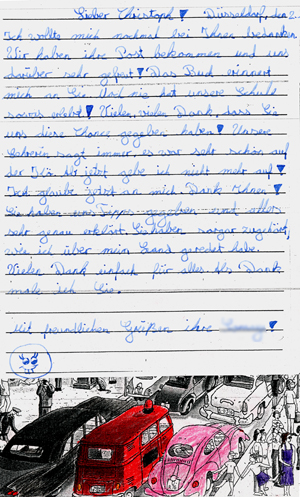 Lieber Christoph! Düsseldorf, den 2
Ich wollte mich nochmal bei Ihnen bedanken
Wir haben ihre Post bekommen und uns
darüber sehr gefreut! Das Bild erinnert
mich an Sie. Noch nie hat unsere Schule
sowas erlebt! Vielen, vielen Dank, dass Sie
uns diese Chance gegeben haben! Unsere
Lehrerin sagt immer, es war sehr schön auf
der Kö. Ab jetzt gebe ich nicht mehr auf!
Ich glaube jetzt an mich. Dank Ihnen!
Sie haben uns Tipps gegeben und alles
sehr genau erklärt. Sie haben sogar zugehört,
wie ich über mein Land geredet habe.
Vielen Dank einfach für alles. Als Dank
male ich Sie.
Mit freundlichen Grüßen ihre